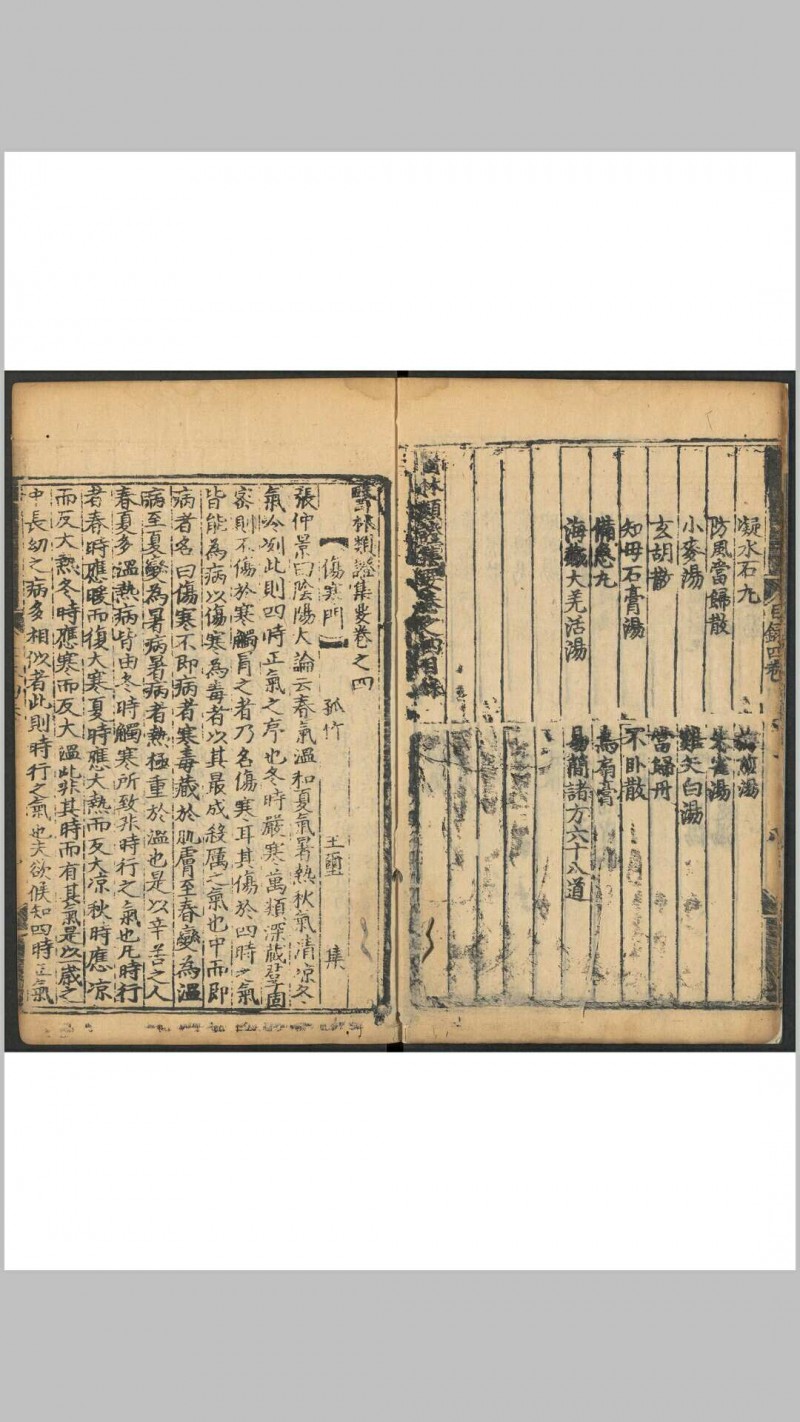 目錄四卷
凝水石丸
防風當歸散
小麥湯
玄胡散
知母石膏湯
備急丸
海藏大羌活湯
雞矢白湯
當歸丹
不卧散
烏扇膏
易簡諸方六十八道
醫林類證集要卷之四目錄
醫林類證集要卷之四
傷寒門 孤竹 王璽 集
張仲景曰陰陽大論云春氣溫和夏氣暑熱秋氣清凉冬
氣冷冽此則四時正氣之序也冬時嚴寒萬類深藏君子固
密則不傷於寒觸冐之者乃名傷寒耳其傷於四時之氣
皆能為病以傷寒為毒者以其最成殺厲之氣也中而即
病者名曰傷寒不即病者寒毒藏於肌膚至春變為溫
病至夏變為暑病暑病者熱極重於溫也是以辛苦之人
春夏多溫熱病皆由冬時觸寒所致非時行之氣也凡時行
者春時應暖而復大寒夏時應大熱而反大凉秋時應凉
而反大熱冬時應寒而反大溫此非其時而有其氣是以一歲之
中長幼之病多相似者此則時行之氣也夫欲候知四時正氣